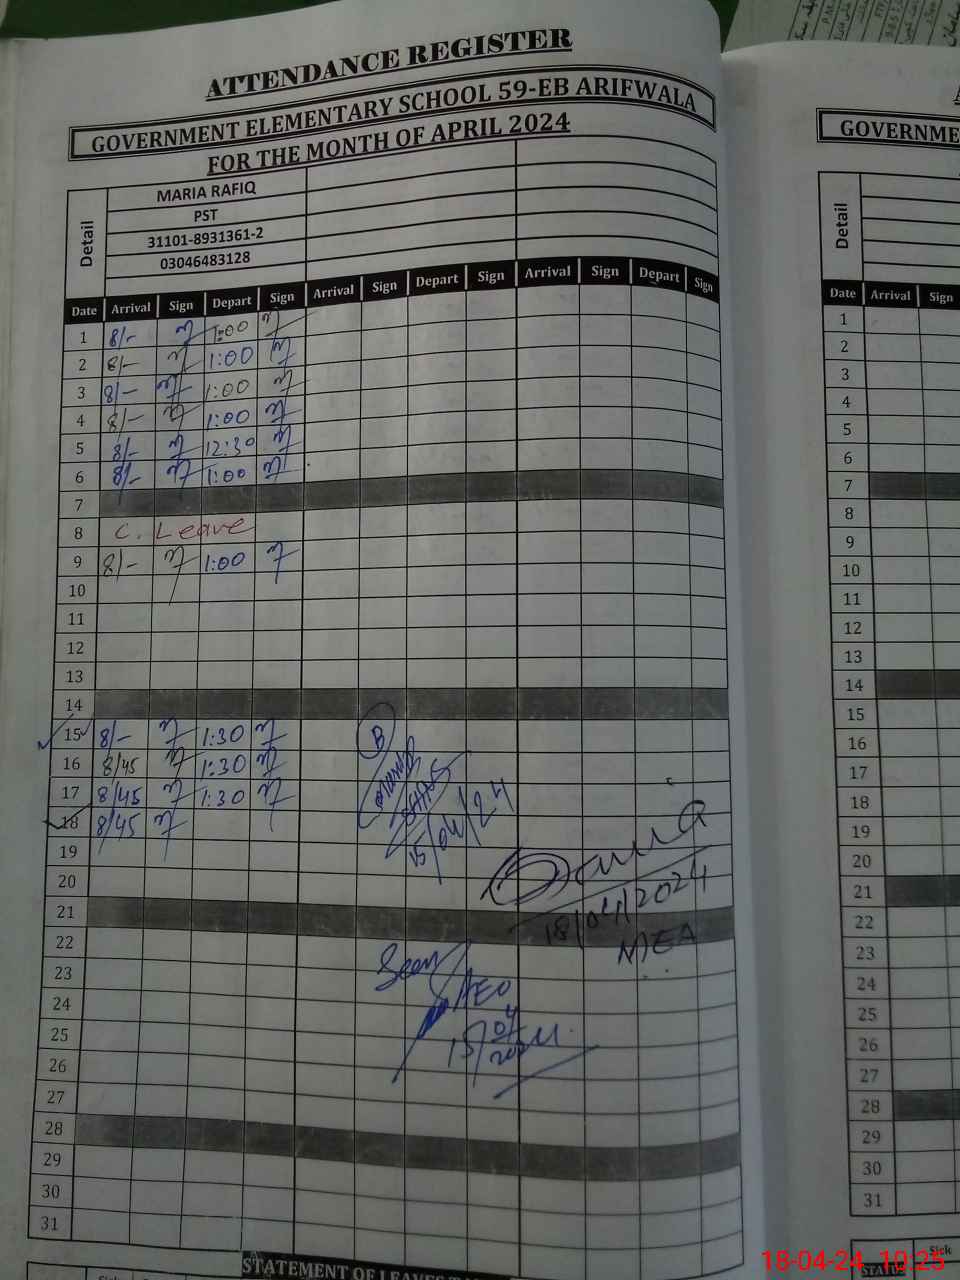 ATTENDANCE REGISTER
GOVERNMENT ELEMENTARY SCHOOL 59-EB ARIFWALA
FOR THE MONTH OF APRIL 2024
Detail
MARIA RAFIQ
PST
31101-8931361-2
03046483128
Date Arrival Sign Depart Sign Arrival Sign Depart Sign Arrival Sign Depart Sign
1 8/- 1:00
2 8/- 1:00
3 8/- 1:00
4 8/- 1:00
5 8/- 12:30
6 8/- 1:00
7
8 C. Leave
9 8/- 1:00
10
11
12
13
14
15 8/- 1:30
16 8/45 1:30
17 8/45 1:30
18 8/45
19
20
21
22
23
24
25
26
27
28
29
30
31
B
15/04/24
18/04/2024
MEA
Seen
AEO
15/04
2024
STATEMENT OF LEAVES
GOVERNME
Detail
Date Arrival Sign
1
2
3
4
5
6
7
8
9
10
11
12
13
14
15
16
17
18
19
20
21
22
23
24
25
26
27
28
29
30
31
Sick
18-04-24 10:25